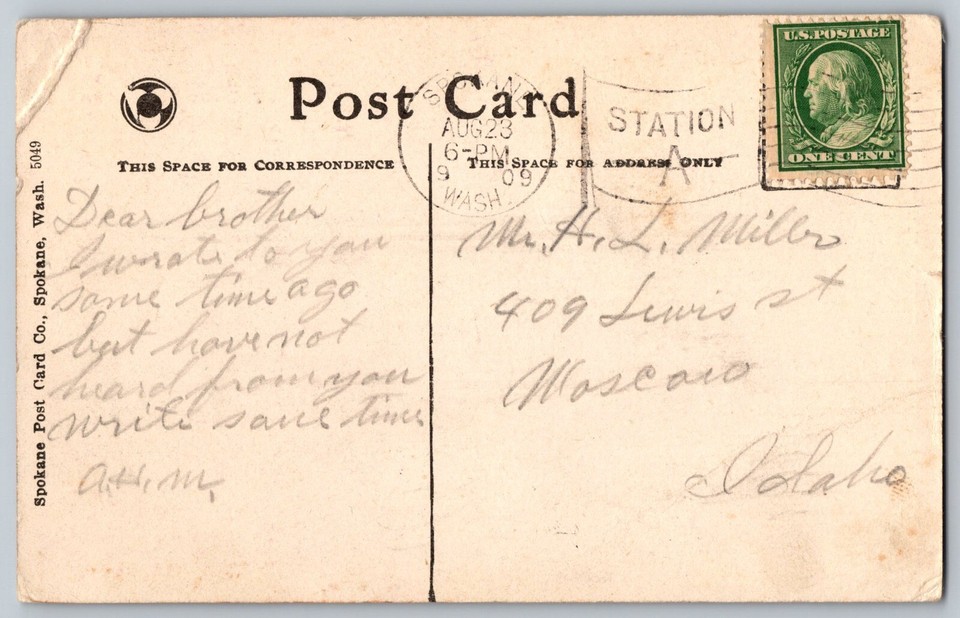 Post Card
SPOKANE
AUG 23
6-PM
9 09
WASH.
STATION
A
U.S. POSTAGE
ONE CENT
THIS SPACE FOR CORRESPONDENCE
THIS SPACE FOR ADDRESS ONLY
Spokane Post Card Co., Spokane, Wash. 5049
Dear brother
I wrote to you
some time ago
but have not
heard from you
write some time
A.H.M.
Mr. H. L. Miller
409 Lewis st
Moscow
Idaho